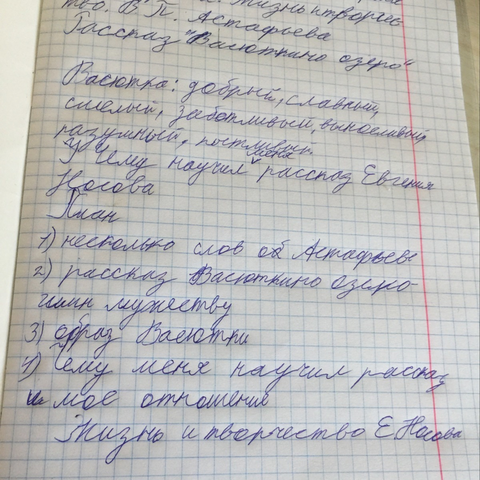 Жизнь и творчес
тво. В. П. Астафьева
Рассказ "Васюткино озеро"
Васютка: добрый, славный,
смелый, заботливый, выносливый,
разумный,
Чему научил меня рассказ Евгения
Носова
План
1) несколько слов об Астафьеве
2) рассказ Васюткино озеро-
гимн мужеству
3) образ Васютки
4) Чему меня научил рассказ
и мое отношение
Жизнь и творчество Е Носова